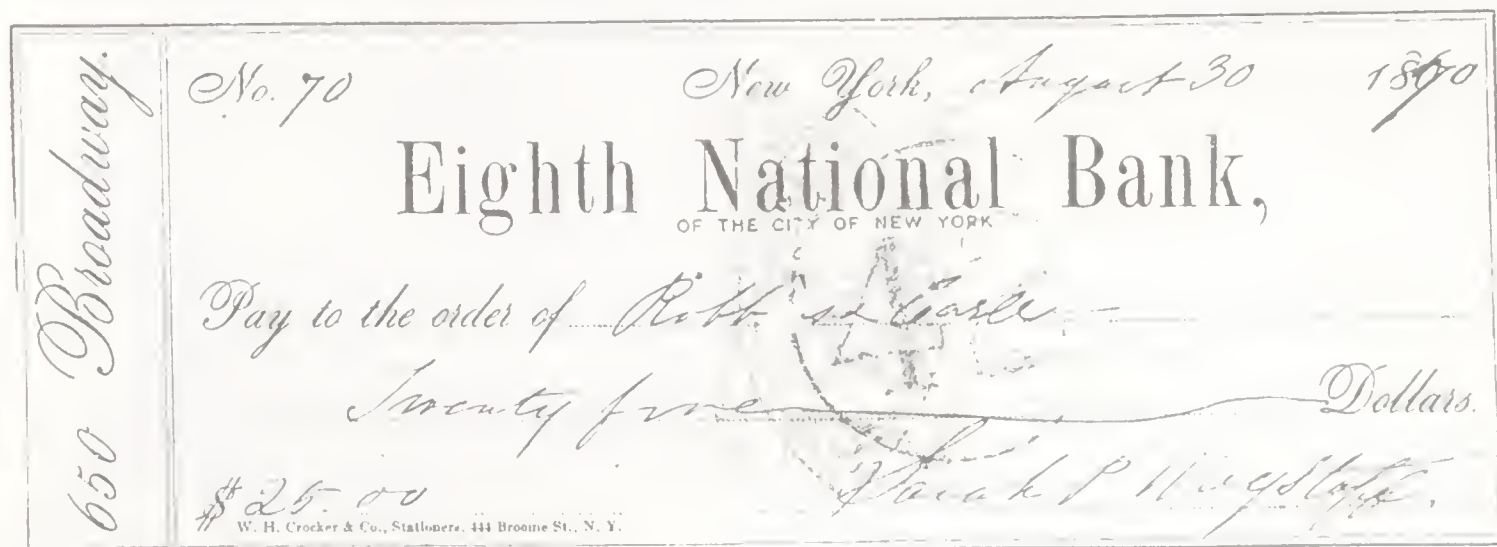 650 Broadway.
No. 70 New York, August 30 1870
Eighth National Bank,
OF THE CITY OF NEW YORK
Pay to the order of Robb
Twenty five Dollars.
$25.00 Sarah P Wagstaff.
W. H. Crocker & Co., Stationers, 444 Broome St., N. Y.